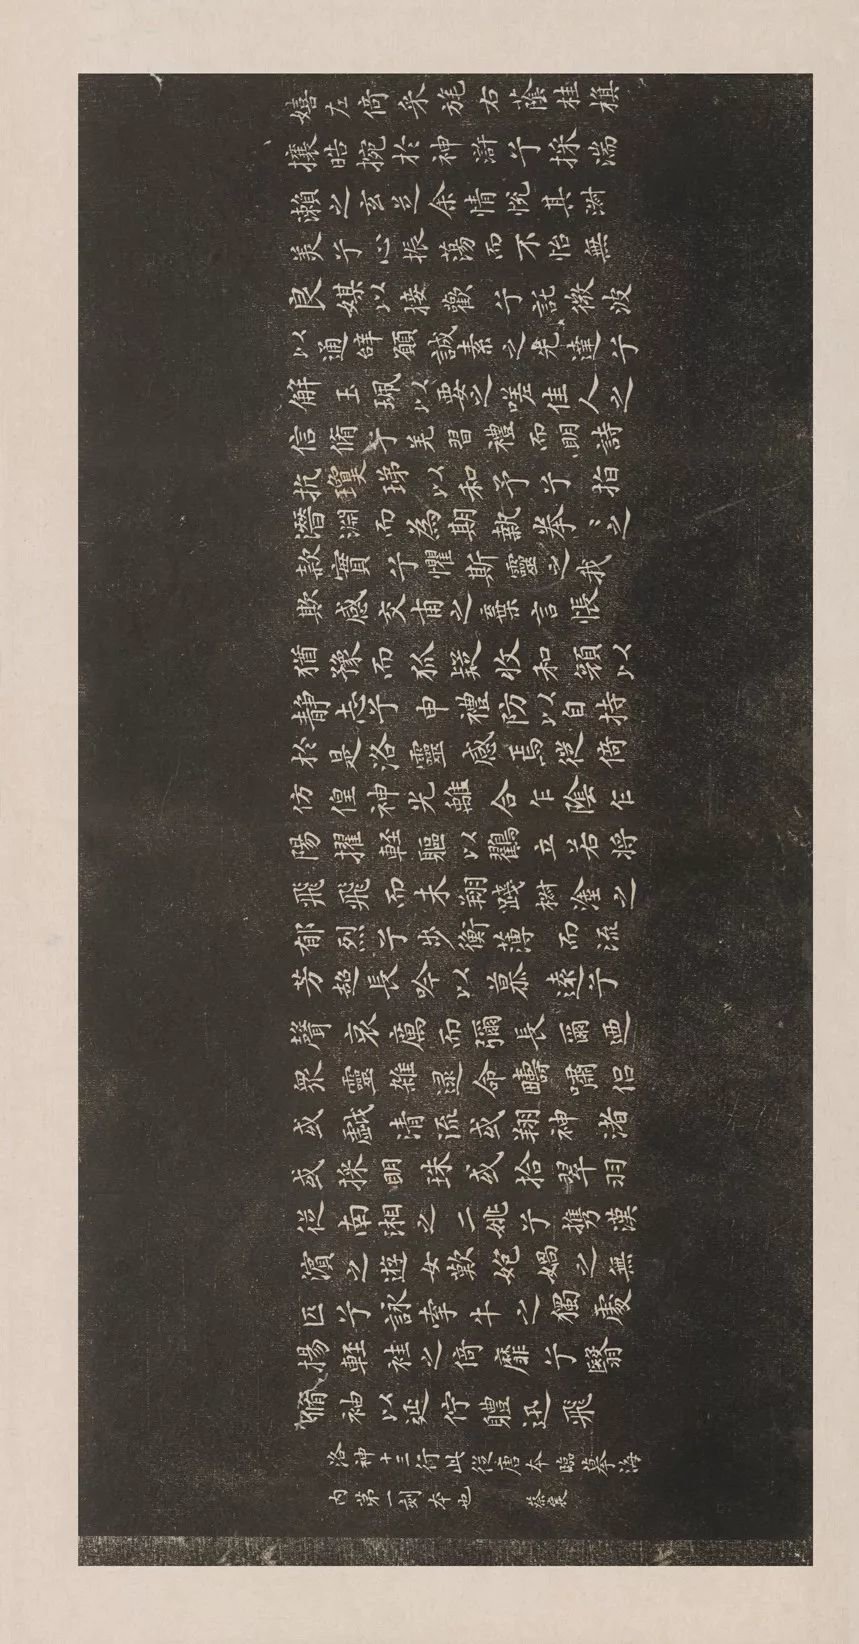 嬉左倚采旄右蔭桂旗
攘皓捥於神滸兮採湍
瀨之玄芝余情悅其淑
美兮心振蕩而不怡無
良媒以接歡兮託微波
以通辝願誠素之先達兮
解玉珮以要之嗟佳人之
信脩兮羌習禮而明詩
抗瓊珶以和予兮指
潛淵而為期執拳〻之
款實兮懼斯靈之我
欺感交甫之棄言悵
猶豫而狐疑收和顏以
靜志兮申禮防以自持
於是洛靈感焉徙倚
仿偟神光離合乍陰乍
陽擢輕軀以鶴立若將
飛飛而未翔踐椒塗之
郁烈兮步衡薄而流
芳超長吟以慕遠兮
聲哀厲而彌長爾迺
眾靈雜遝命疇嘯侶
或戲清流或翔神渚
或採明珠或拾翠羽
從南湘之二姚兮攜漢
濱之遊女歎妑媧之無
匹兮詠牽牛之獨處
揚輕袿之倚靡兮翳
脩袖以延佇體迅飛
洛神十三行此從唐本臨摹海
內第一刻本也 蔡襄